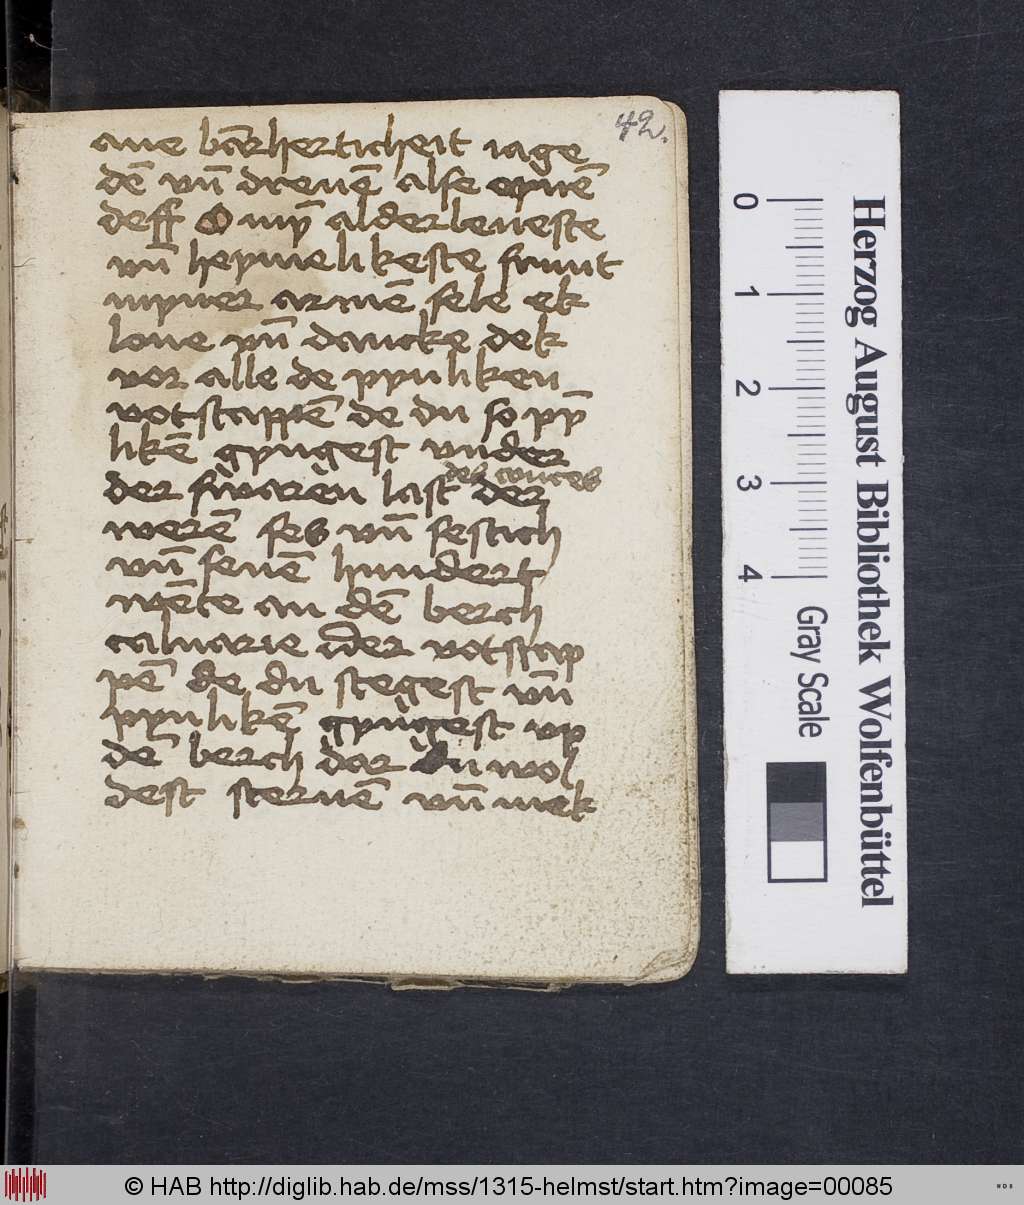 42.
ane bar̄herticheit iage
dē vn̄ dreuē alse eynē
deff O my̅ alderleueste
vn̄ heymelikeste frunt
myner armē sele ek
loue vn̄ dancke dek
vor alle de pynliken
votstappē de du so py̅
likē gyngest vnder
des cruces
der swaren last der
weren ses vn̄ sestich
vn̄ seuē hundert
wēte an dē berch
caluarie in̅ der votstap
pē de du stegest vn̄
pynlikē gyngest vp
dē berch dar du wol
dest steruē vn̄ mek
0 1 2 3 4
Gray Scale
Herzog August Bibliothek Wolfenbüttel
© HAB http://diglib.hab.de/mss/1315-helmst/start.htm?image=00085